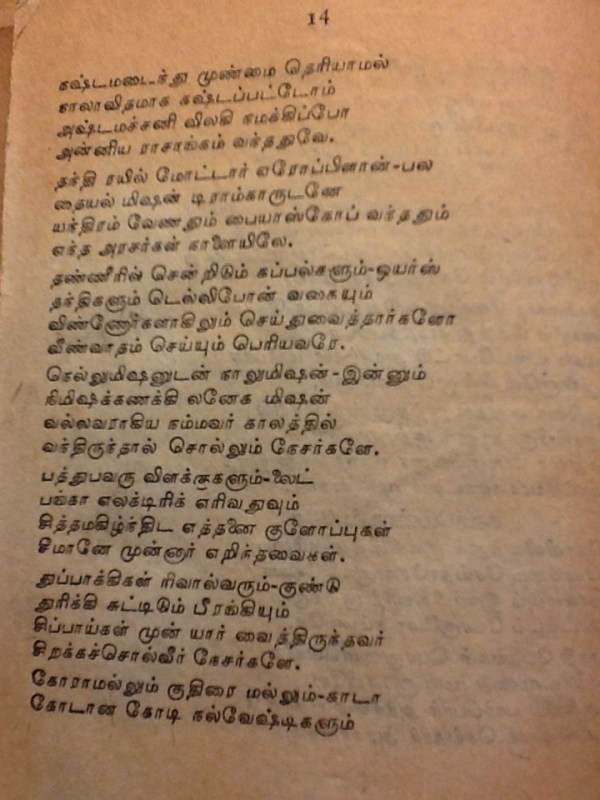 14
கஷ்டமடைந்து முண்மை தெரியாமல்
காலாவிதமாக கஷ்டப்பட்டோம்
அஷ்டமச்சனி விலகி நமக்கிப்போ
அன்னிய ராசாங்கம் வந்ததுவே.
தந்தி ரயில் மோட்டார் ஏரோப்பிளான்-பல
தையல் மிஷன் டிராம்காருடனே
யந்திரம் வேணதும் பையாஸ்கோப் வந்ததும்
எந்த அரசர்கள் காளையிலே.
தண்ணீரில் சென்றிடும் கப்பல்களும்-ஒயர்ஸ்
தந்திகளும் டெல்லிபோன் வகையும்
விண்ணோர்களாகிலும் செய்துவைத்தார்களோ
வீண்வாதம் செய்யும் பெரியவரே.
நெல்லுமிஷனுடன் நாலுமிஷன்-இன்னும்
நிமிஷக்கணக்கி லனேக மிஷன்
வல்லவராகிய நம்மவர் காலத்தில்
வந்திருந்தால் சொல்லும் நேசர்களே.
பத்துபவரு விளக்குகளும்-லைட்
பங்கா எலக்டிரிக் எரிவதுவும்
சித்தமகிழ்ந்திட எத்தனை குளோப்புகள்
சீமானே முன்னார் எறிந்தவைகள்.
துப்பாக்கிகள் ரிவால்வரும்-குண்டு
துரிக்கி சுட்டிடும் பீரங்கியும்
சிப்பாய்கள் முன் யார் வைத்திருந்தவர்
சிறக்கச்சொல்வீர் நேசர்களே.
கோராமல்லும் குதிரை மல்லும்-காடா
கோடான கோடி நல்வேஷ்டிகளும்